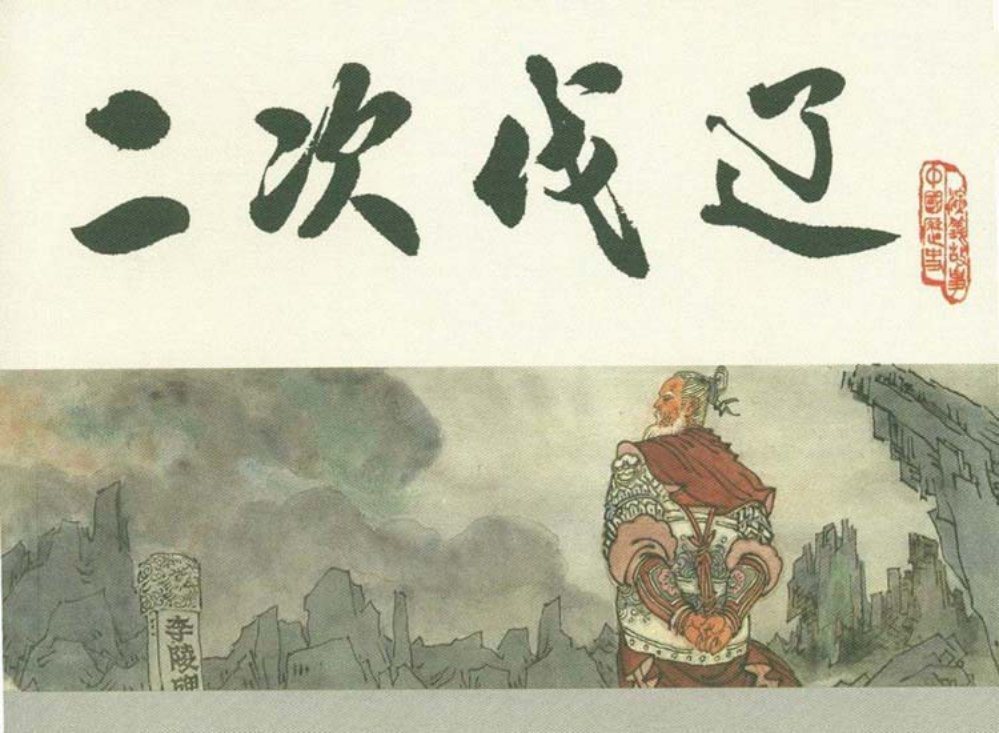 二次伐辽
中國歷史
演義故事
李陵碑